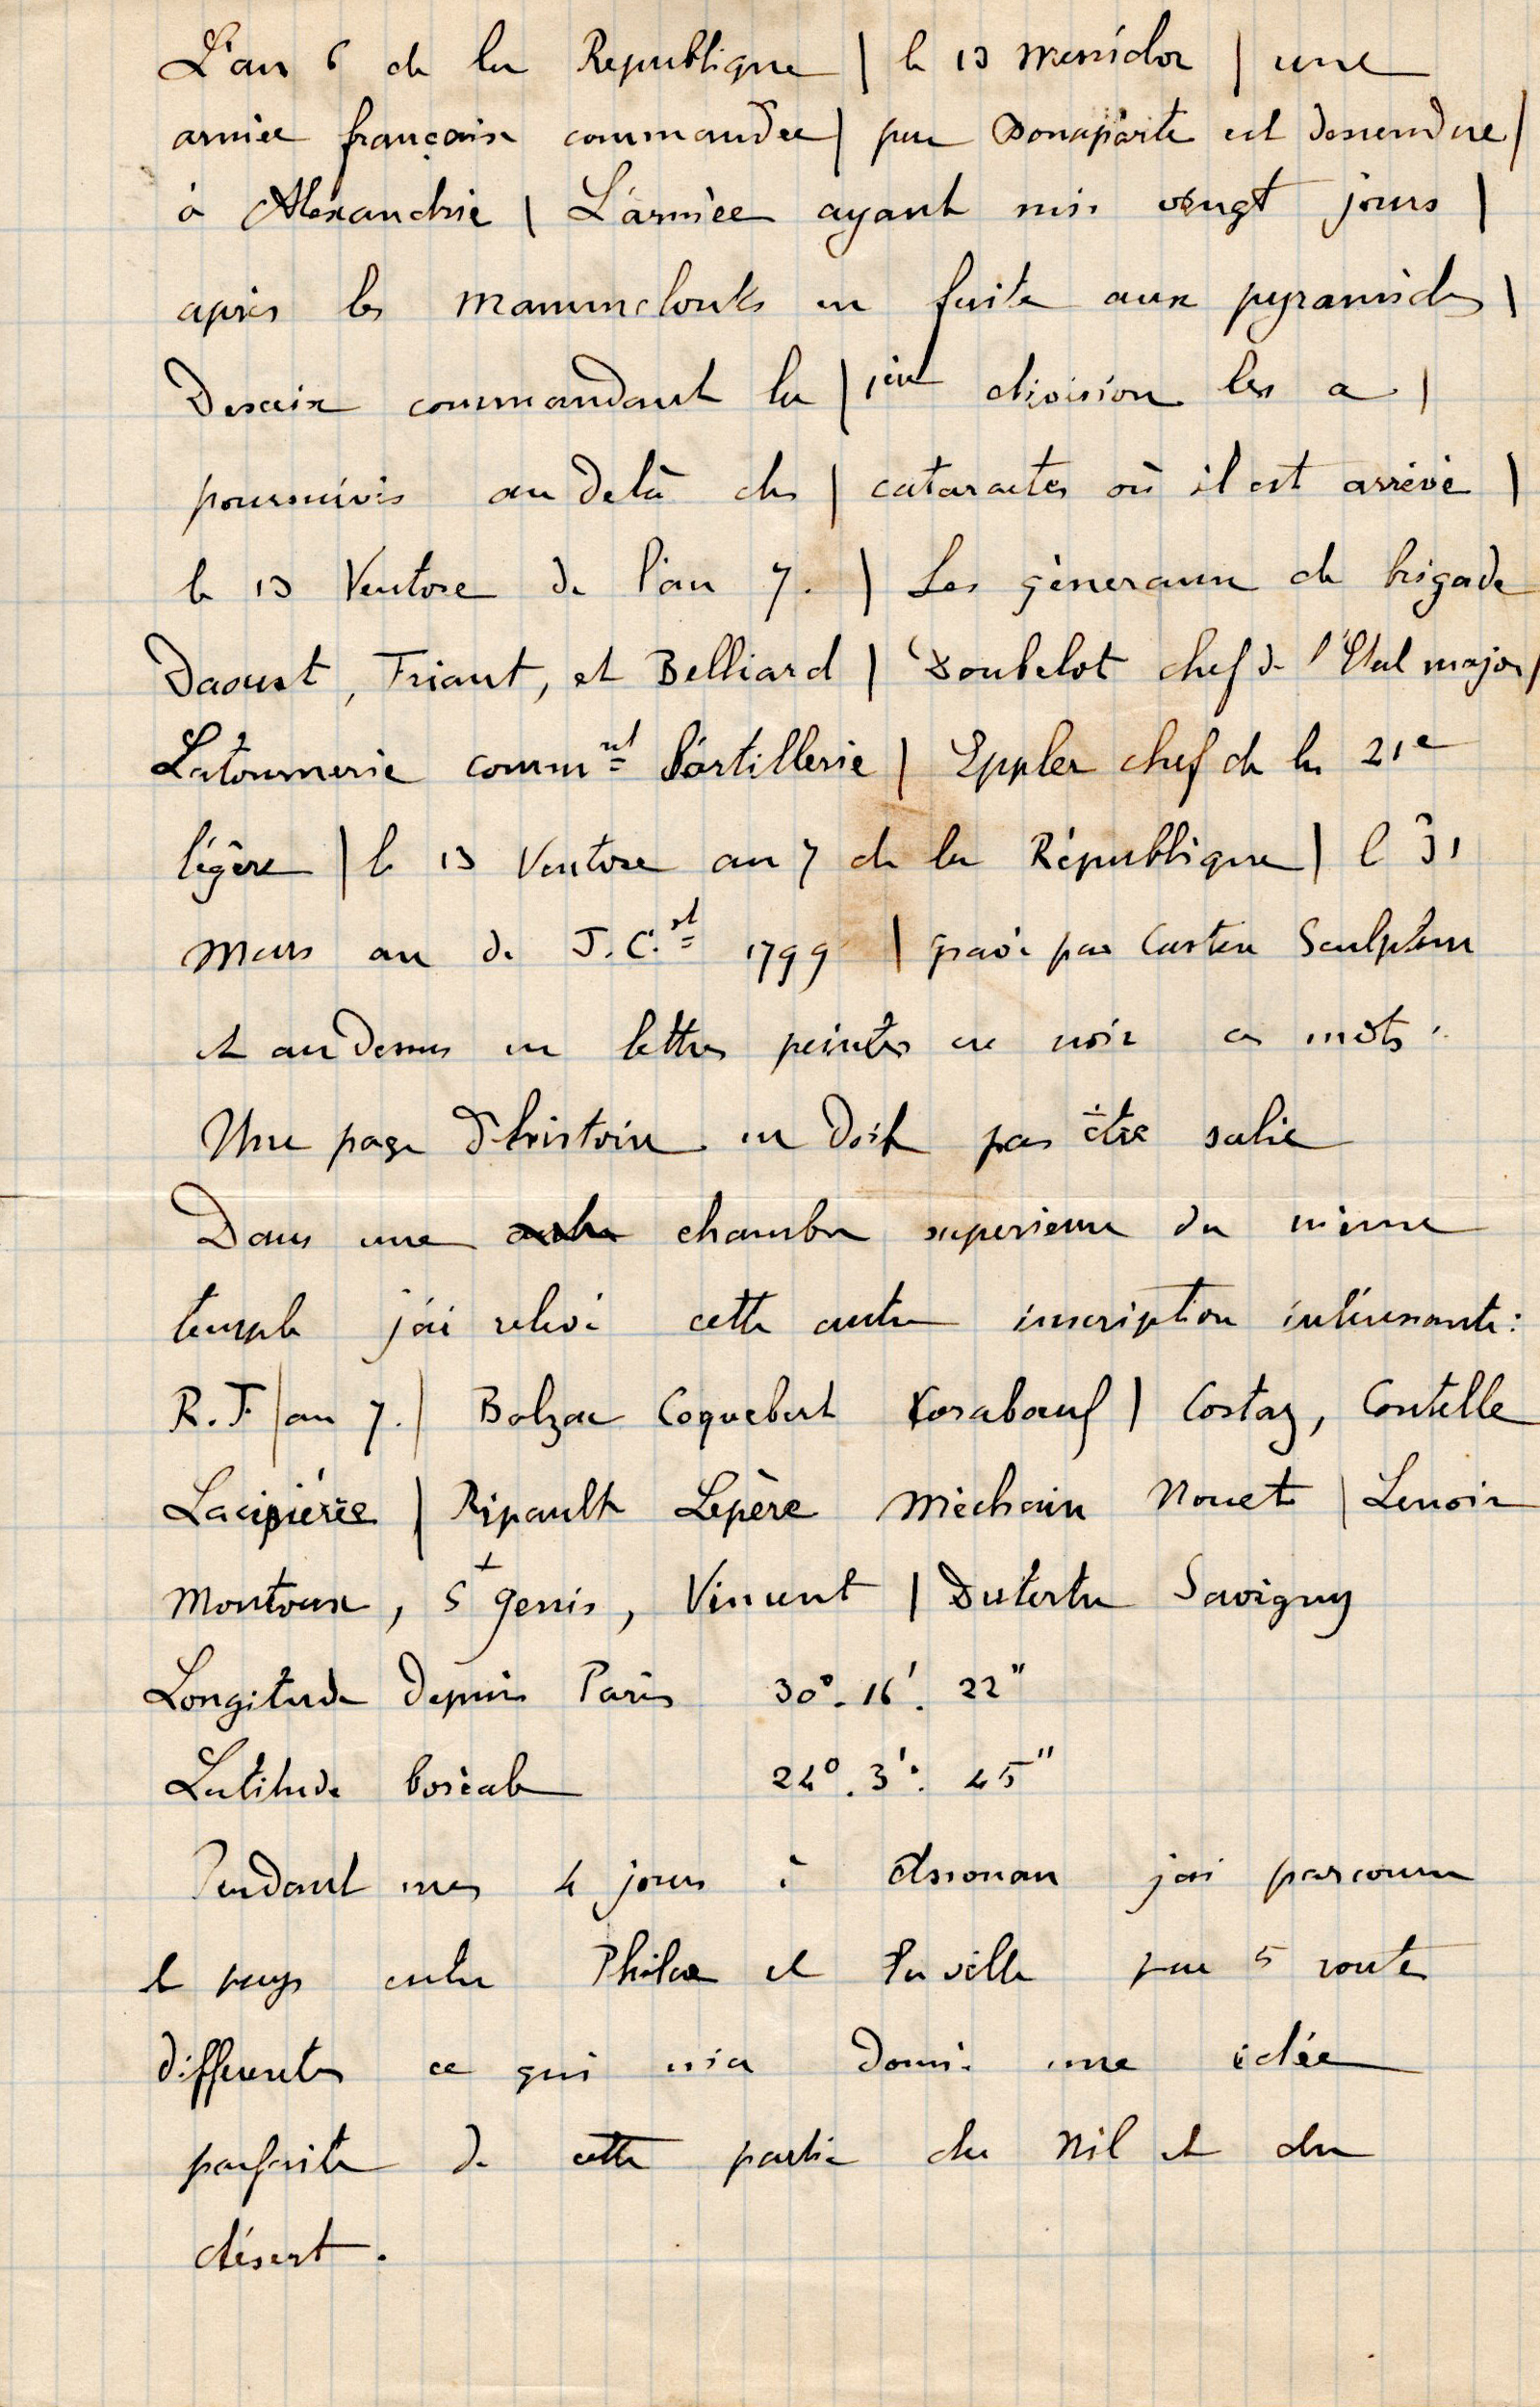 L'an 6 de la Republique | le 13 messidor | une
armée française commandée | par Bonaparte est descendue |
à Alexandrie | L'armée ayant mis vingt jours |
après les mammelouks en fuite aux pyramides |
Desaix commandant la | 1ère division les a |
poursuivis au delà des | cataractes où il est arrivé |
le 13 Ventose de l'an 7. | Les géneraux de brigade
Daoust, Friant, et Belliard | Donbelot chef de l'Etat major |
Latournerie commnt l'artillerie | Eppler chef de la 21e
légère | le 13 Ventose an 7 de la République | le 31
mars an de J.C.st 1799 | gravé par Casteu Sculpteur
et au dessus en lettres peintes en noir ces mots :
Une page d'histoire ne doit pas être salie
Dans une chambre superieure du même
temple j'ai relevé cette autre inscription intéressante :
R.F. | an 7. | Balzac Coquebert Corabœuf | Costaz, Coutelle
Lacipière | Ripault Lepère Méchain Nouet | Lenoir
Montoux, St Genis, Vincent | Dutertre Savigny
Longitude depuis Paris 30°. 16'. 22"
Latitude boréale 24°. 3'. 45"
Pendant mes 4 jours à Assouan j'ai parcouru
le pays entre Philae et la ville par 5 routes
differentes ce qui m'a donné une idée
parfaite de cette partie du Nil et du
désert.